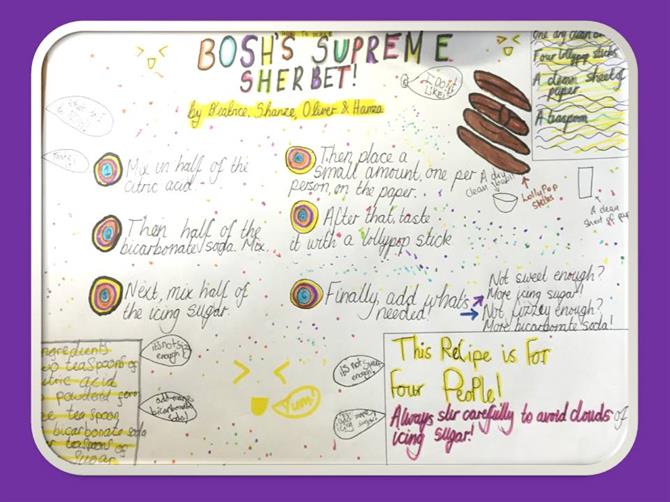 HOW TO MAKE
BOSH'S SUPREME
SHERBET!
by Beatrice, Shanze, Oliver & Hamza
I DO IT
LIKE IT!
One dry clean
Four lollypop sticks
A clean sheet of
paper
A teaspoon
1
Mix in half of the
citric acid.
2
Then half of the
bicarbonate soda. Mix.
3
Next, mix half of
the icing sugar.
4
Then place a
small amount, one per
person, on the paper.
5
After that, taste
it with a lollypop stick
6
Finally, add what's
needed!
Not sweet enough?
More icing sugar!
Not fizzey enough?
More bicarbonate soda!
A dry
clean bowl
LollyPop
Sticks
A clean
sheet of
ingredients
teaspoons of
citric acid
powdered form
teaspoon
bicarbonate soda
teaspoons of
sugar
it's not
enough!
add more
bicarbonate
soda!
Yum!
it's not sweet
enough!
add more
icing
sugar!
This Recipe is For
Four People!
Always stir carefully to avoid clouds of
icing sugar!